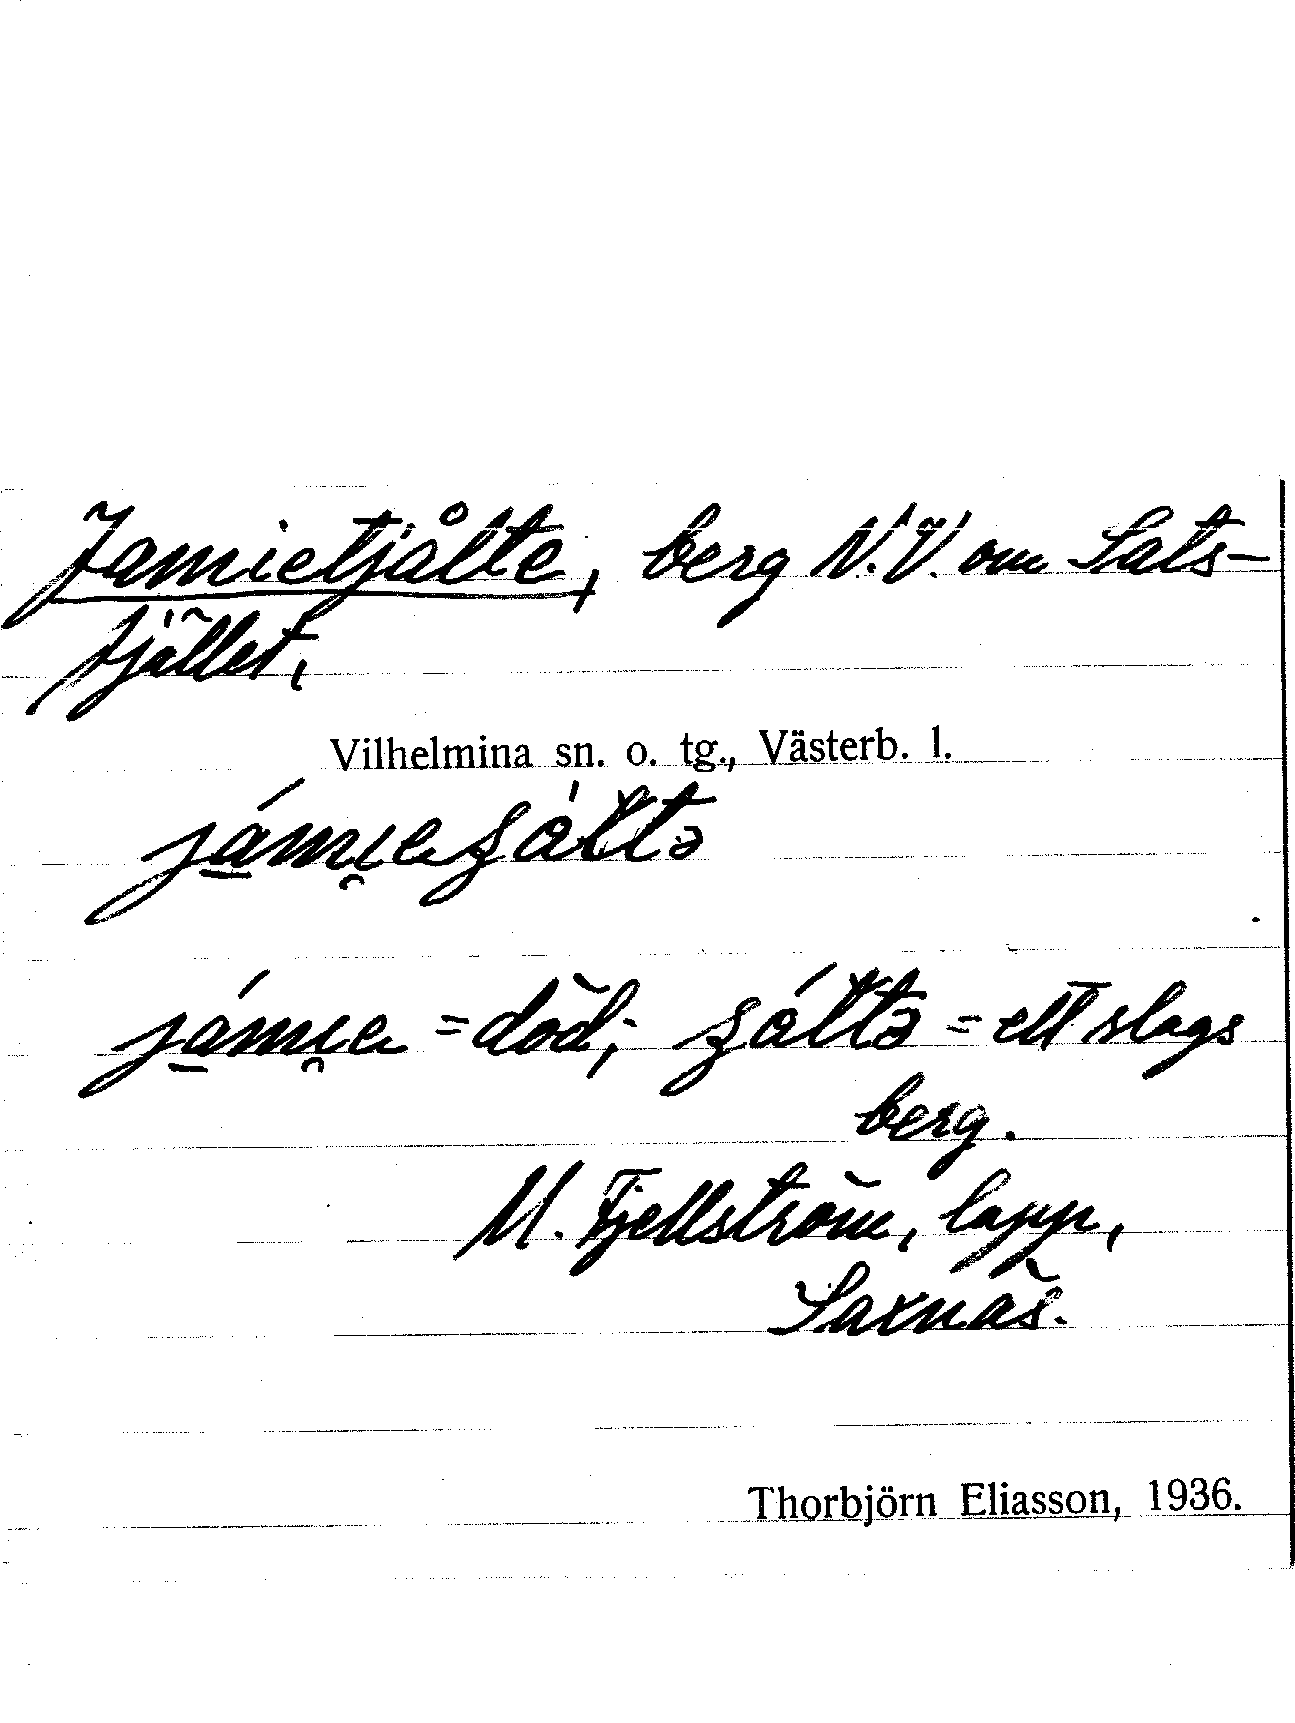 Jamietjålte, berg N.V. om Sats-
fjället,
Vilhelmina sn. o. tg., Västerb. l.
já̱mi̯eʒǻltə
já̱mi̯e = död; ʒǻltə = ett slags
berg.
M. Fjellström, lapp,
Saxnäs.
Thorbjörn Eliasson, 1936.